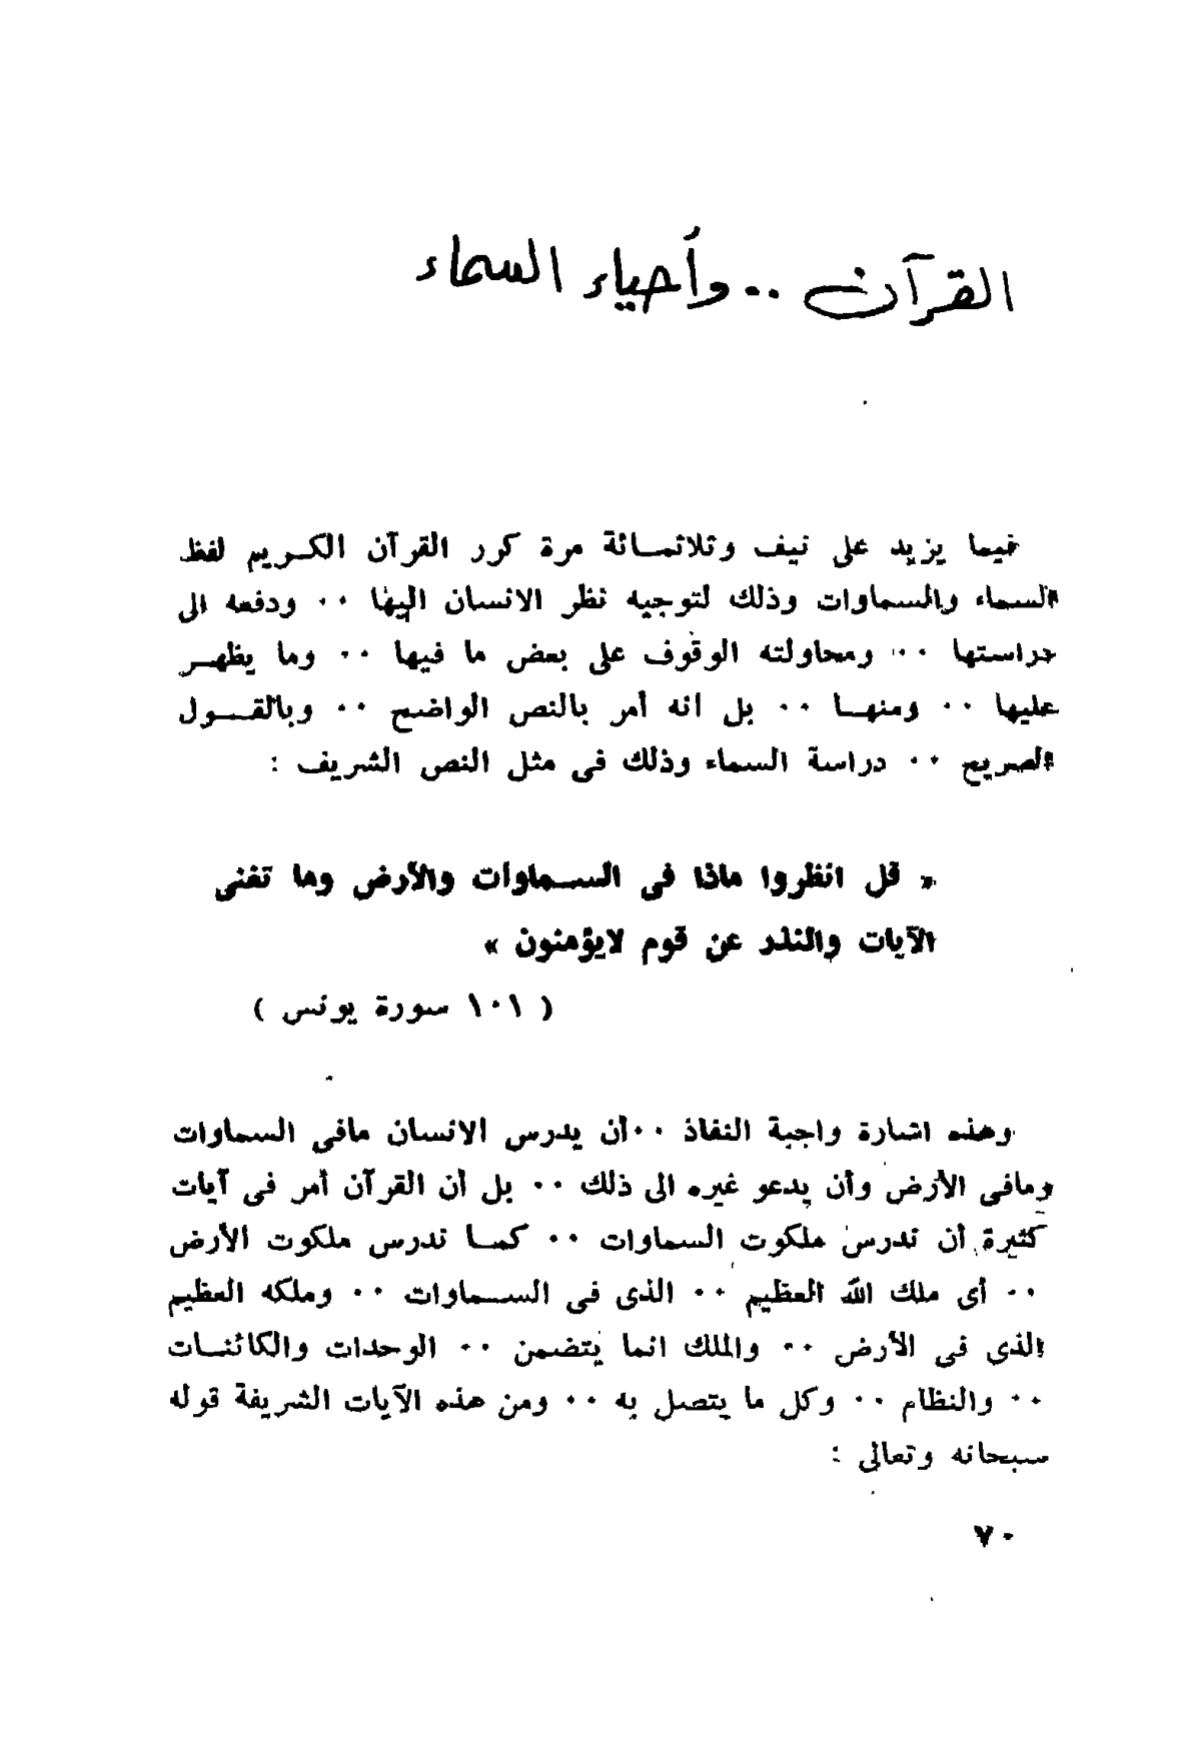 القرآن .. وأحياء السماء
فيما يزيد على نيف وثلاثمائة مرة كرر القرآن الكريم لفظ
السماء والسماوات وذلك لتوجيه نظر الانسان اليها .. ودفعه الى
دراستها .. ومحاولته الوقوف على بعض ما فيها .. وما يظهر
عليها .. ومنها .. بل انه أمر بالنص الواضح .. وبالقول
الصريح .. دراسة السماء وذلك فى مثل النص الشريف :
« قل انظروا ماذا فى السماوات والأرض وما تغنى
الآيات والنذر عن قوم لايؤمنون »
( ١٠١ سورة يونس )
وهذه اشارة واجبة النفاذ ..أن يدرس الانسان مافى السماوات
ومافى الأرض وأن يدعو غيره الى ذلك .. بل أن القرآن أمر فى آيات
كثيرة أن تدرس ملكوت السماوات .. كما تدرس ملكوت الأرض
.. أى ملك الله العظيم .. الذى فى السماوات .. وملكه العظيم
الذى فى الأرض .. والملك انما يتضمن .. الوحدات والكائنات
.. والنظام .. وكل ما يتصل به .. ومن هذه الآيات الشريفة قوله
سبحانه وتعالى :
٧٠